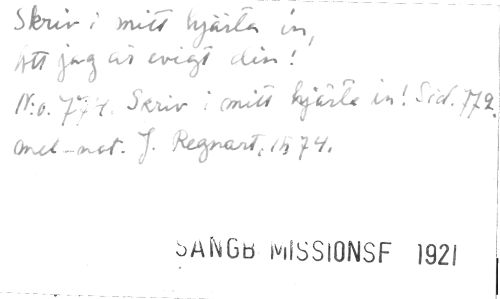 Skriv i mitt hjärta in,
Att jag är evigt din!
N:o. 774. Skriv i mitt hjärta in! Sid. 772.
mel-not. J. Regnart, 1574.
SANGB MISSIONSF 1921